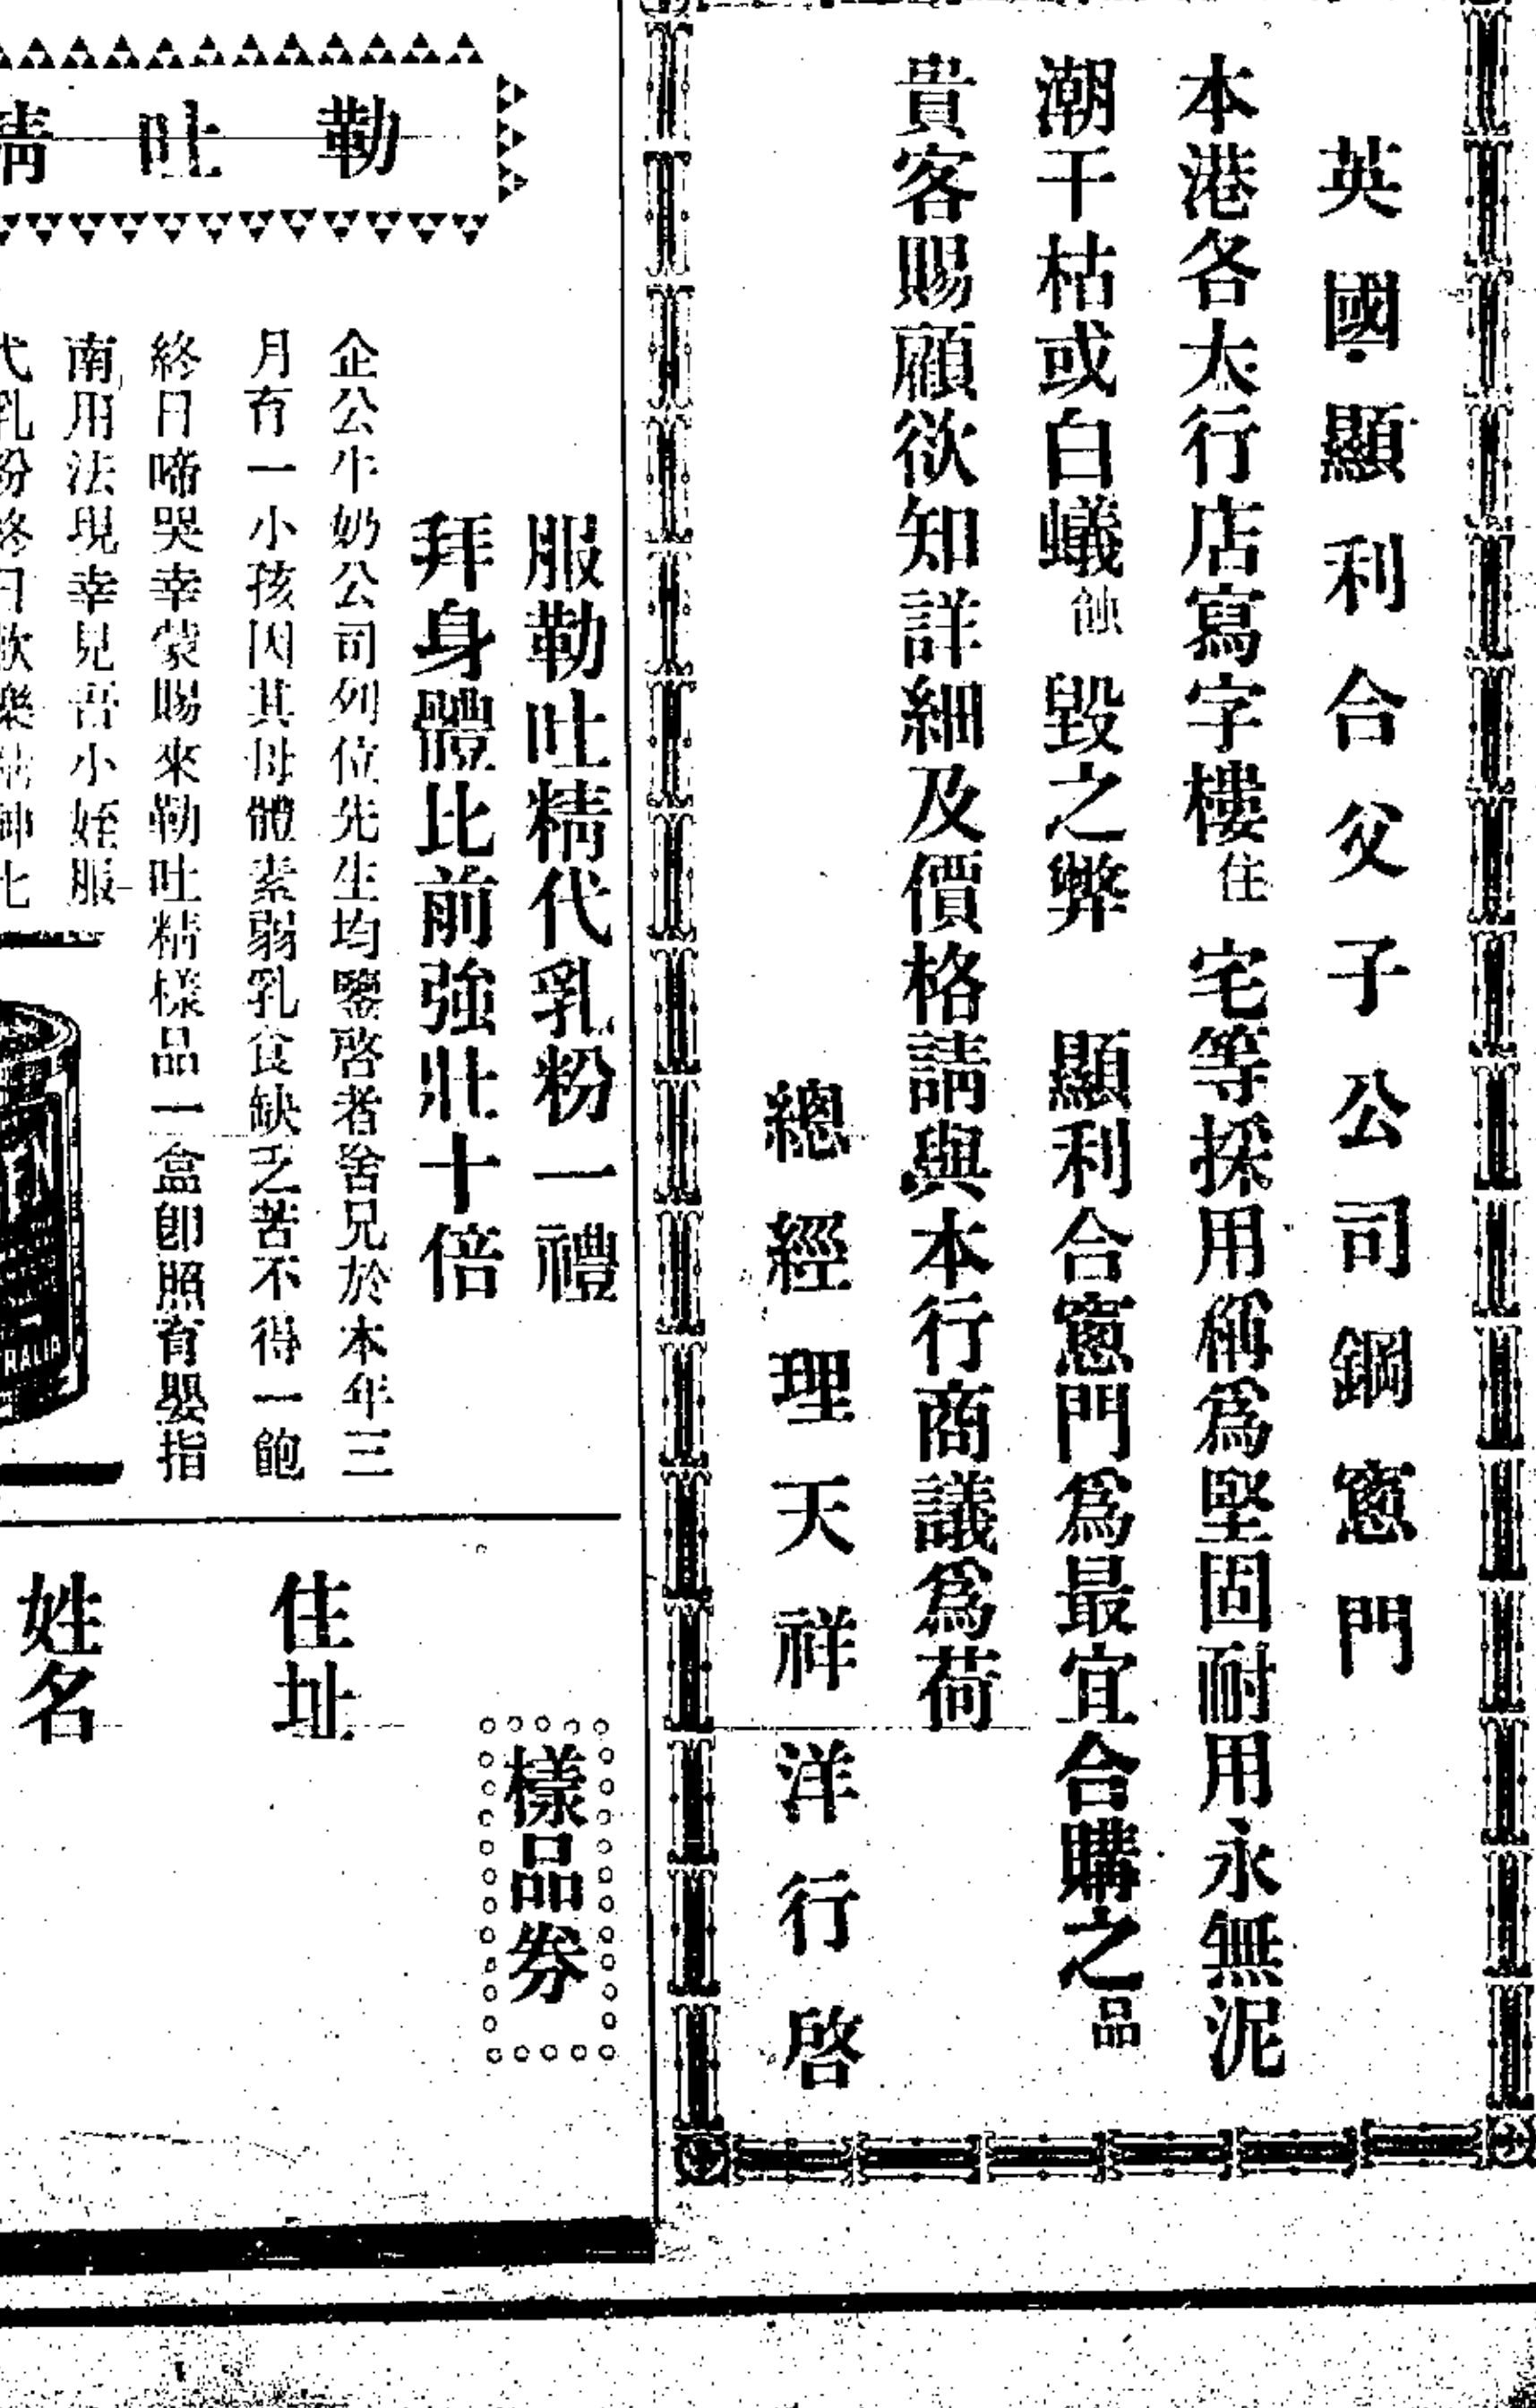 英國顯利合父子公司鋼窻門
本港各大行店寫字樓住宅等採用稱爲堅固耐用永無泥
潮干枯或白蟻蝕毀之弊 顯利合窻門爲最宜合購之品
貴客賜顧欲知詳細及價格請與本行商議爲荷
總經理天祥洋行啓
勒吐精
服勒吐精代乳粉一禮
拜身體比前強壯十倍
企公牛奶公司列位先生均鑒啓者舍兄於本年三
月有一小孩因其母體素弱乳食缺乏苦不得一飽
終日啼哭幸蒙賜來勒吐精樣品一盒卽照育嬰指
南用法現幸見吾小姪服
代乳粉終日歡樂精神比
RALIA
樣品券
住址
姓名